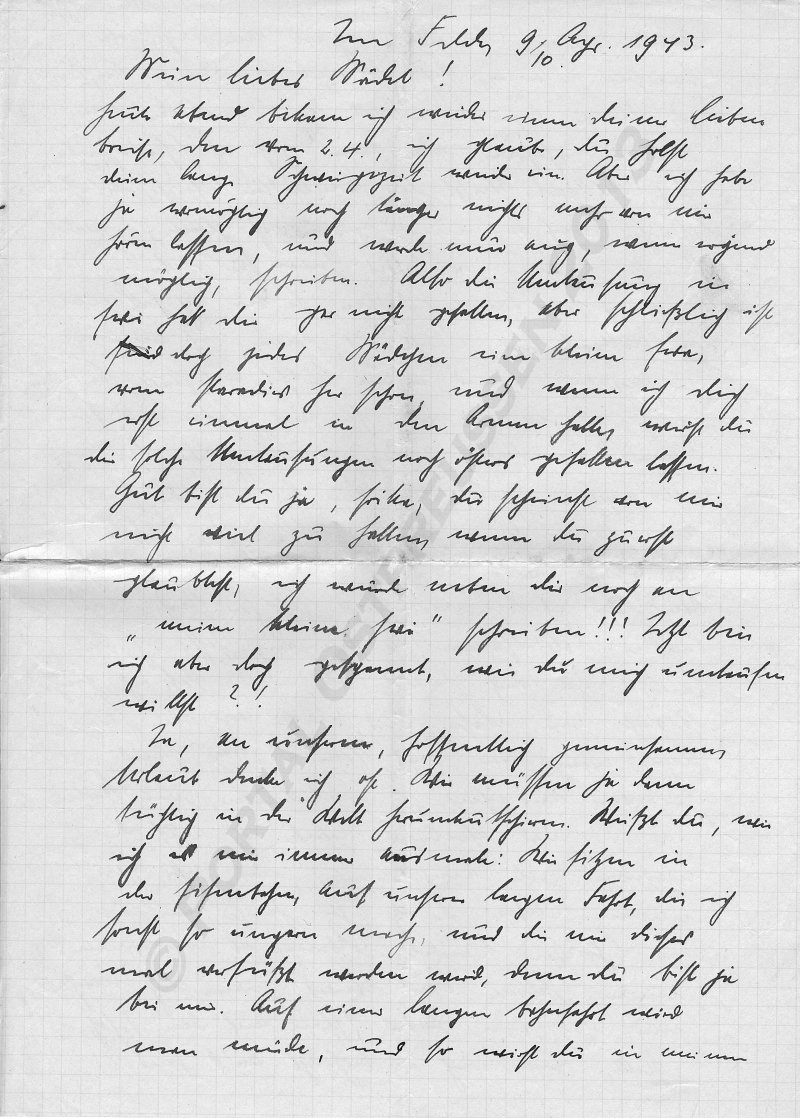 Im Felde, 9./10. Apr. 1943.
Mein liebes Mädel!
Heute abend bekam ich wieder einen deiner lieben
Briefe, den vom 2.4., ich glaube, du holst
deine lange Schweigezeit wieder ein. Aber ich habe
ja womöglich noch länger nichts mehr von mir
hören lassen, und werde nun auch, wenn irgend
möglich, schreiben. Also die Umtaufung in
Evi hat dir gar nicht gefallen, aber schließlich ist
doch jedes Mädchen eine kleine Eva,
vom Paradies her schon, und wenn ich dich
erst einmal in den Armen halte, wirst du
dir solche Umtaufungen noch öfters gefallen lassen.
Gut bist du ja, Erika, du scheinst von mir
nicht viel zu halten, wenn du zuerst
glaubtest, ich würde neben dir noch an
„meine kleine Evi" schreiben!!! Jetzt bin
ich aber doch gespannt, wie du mich umtaufen
willst?!
Ja, an unseren, hoffentlich gemeinsamen,
Urlaub denke ich oft. Wir müssen ja dann
tüchtig in der Welt herumkutschieren. Weißt du, wie
ich es mir immer ausmale: Wir sitzen in
der Eisenbahn, auf unserer langen Fahrt, die ich
sonst so ungern mache, und die mir dieses
mal versüßt werden wird, denn du bist ja
bei mir. Auf einer langen Bahnfahrt wird
man müde, und so wirst du in meinen
© PORTAL OSTERREISSEN 2013